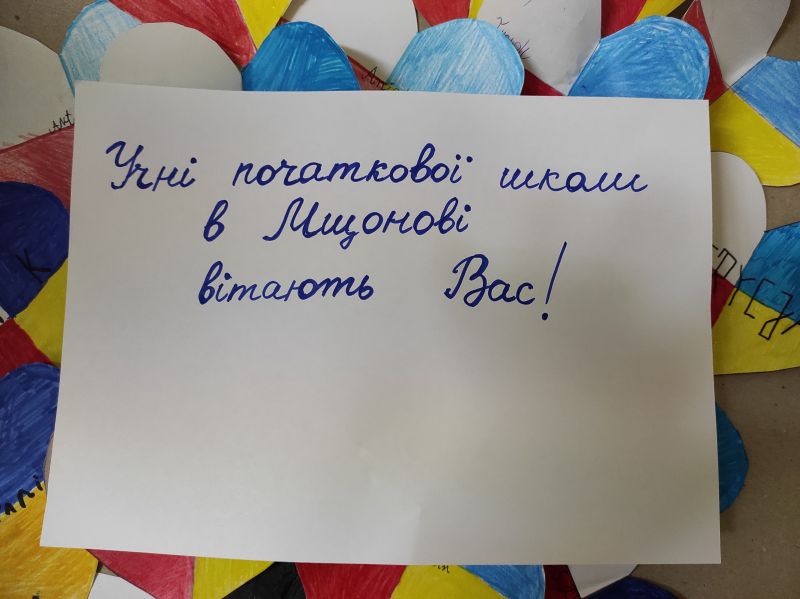 Учні початкової школи
в Мщонові
вітають Вас!